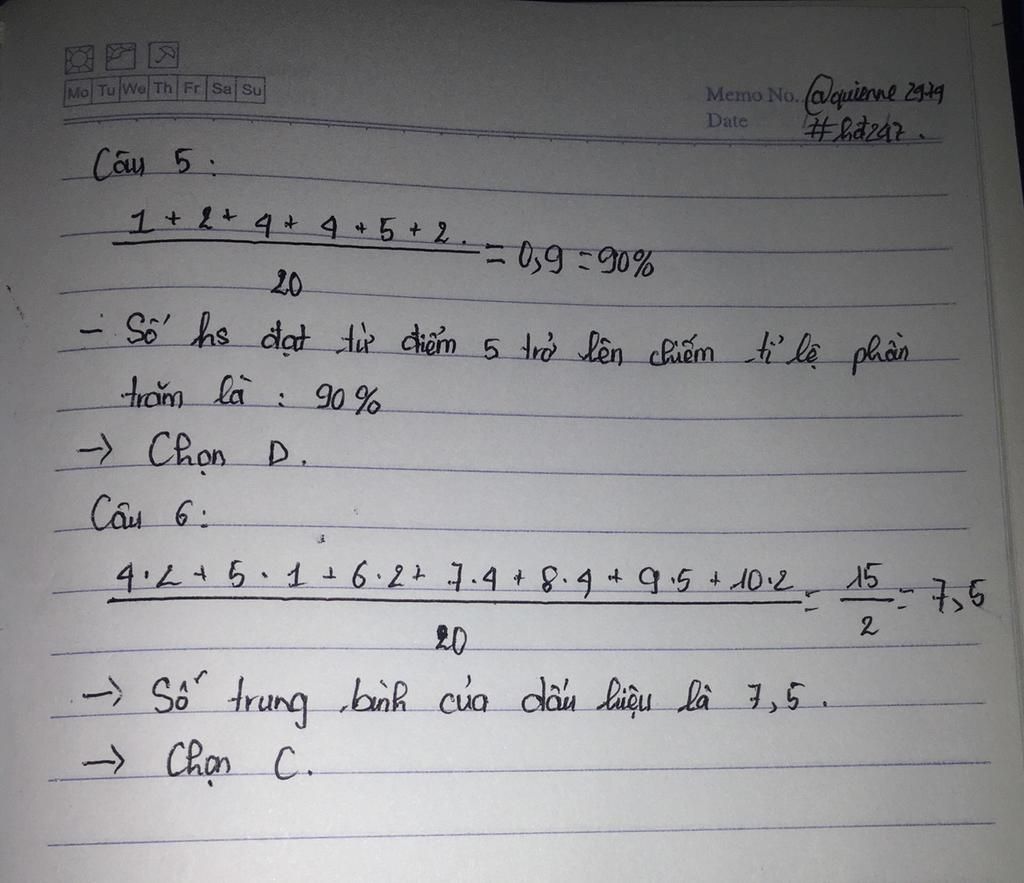 Mo Tu We Th Fr Sa Su
Memo No. @quienne 2979
Date #hđ247.
Câu 5:
1 + 2 + 4 + 4 + 5 + 2 = 0,9 = 90%
20
- Số hs đạt từ điểm 5 trở lên chiếm tỉ lệ phần
trăm là : 90%
→ Chọn D.
Câu 6:
4.2 + 5.1 + 6.2 + 7.4 + 8.4 + 9.5 + 10.2 = 15 = 7,5
20 2
→ Số trung bình của dấu hiệu là 7,5.
→ Chọn C.